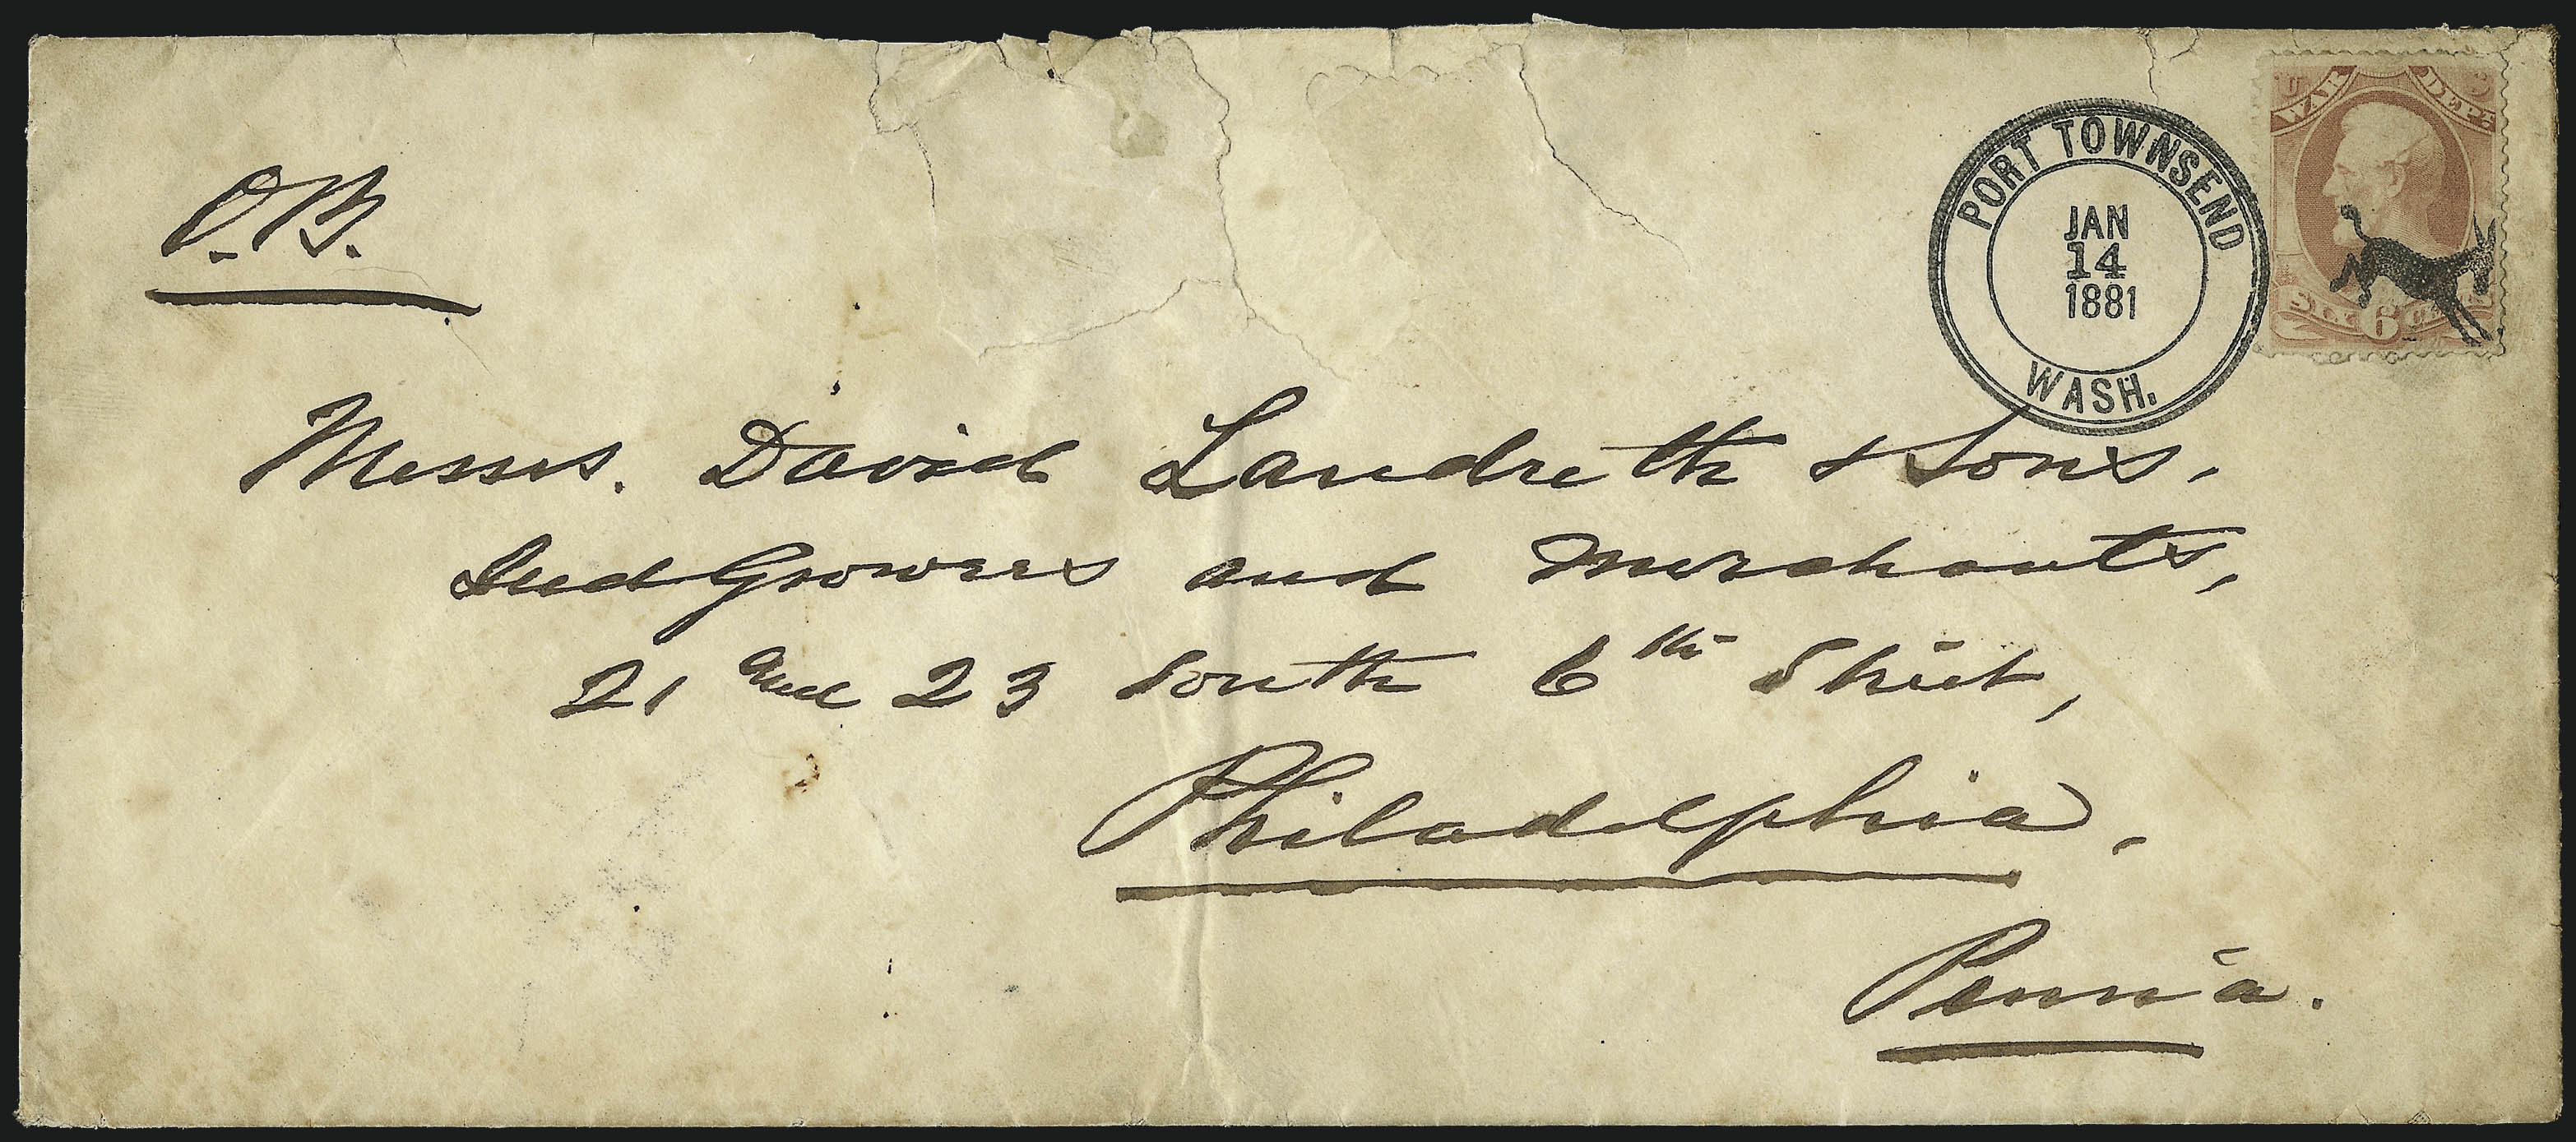 O.B.
U S
WAR DEPT.
PORT TOWNSEND
JAN
14
1881
WASH.
SIX 6 CENTS
Messrs. David Landreth & Sons,
Seed Growers and Merchants,
21 and 23 South 6th Street,
Philadelphia,
Penn'a.